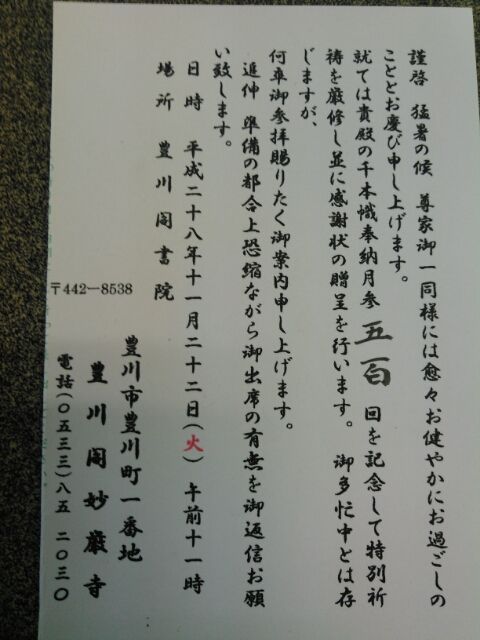 謹啓 猛暑の候 尊家御一同様には愈々お健やかにお過ごしの
こととお慶び申し上げます。
就ては貴殿の千本幟奉納月参 五百 回を記念して特別祈
祷を厳修し並に感謝状の贈呈を行います。 御多忙中とは存
じますが、
何卒御参拝賜りたく御案内申し上げます。
追伸 準備の都合上恐縮ながら御出席の有無を御返信お願
い致します。
日時 平成二十八年十一月二十二日(火) 午前十一時
場所 豊川閣書院
〒442-8538
豊川市豊川町一番地
豊川閣妙厳寺
電話(〇五三三)八五 二〇三〇